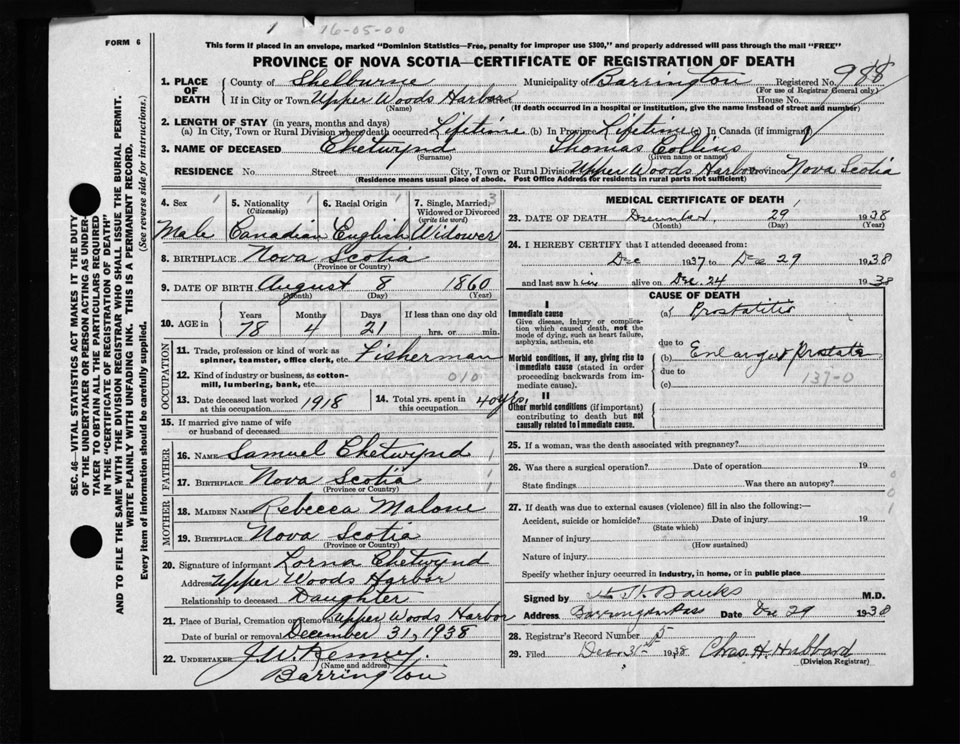 1 16-05-00
FORM 6
This form if placed in an envelope, marked "Dominion Statistics—Free, penalty for improper use $300," and properly addressed will pass through the mail "FREE"
PROVINCE OF NOVA SCOTIA—CERTIFICATE OF REGISTRATION OF DEATH
1. PLACE OF DEATH
County of Shelburne Municipality of Barrington Registered No. 988
(For use of Registrar General only)
If in City or Town Upper Woods Harbor House No.
(Name) (If death occurred in a hospital or institution, give the name instead of street and number)
2. LENGTH OF STAY (in years, months and days)
(a) In City, Town or Rural Division where death occurred Lifetime (b) In Province Lifetime (c) In Canada (if immigrant)
3. NAME OF DECEASED Chetwynd Thomas Collins
(Surname) (Given name or names)
RESIDENCE No. Street City, Town or Rural Division Upper Woods Harbor Province Nova Scotia
(Residence means usual place of abode. Post Office Address for residents in rural parts not sufficient)
4. Sex 1 5. Nationality (Citizenship) 1 6. Racial Origin 1 7. Single, Married, Widowed or Divorced (write the word) 3
Male Canadian English Widower
8. BIRTHPLACE Nova Scotia
(Province or Country)
9. DATE OF BIRTH August 8 1860
(Month) (Day) (Year)
10. AGE in Years Months Days If less than one day
78 4 21 hrs. or min.
OCCUPATION
11. Trade, profession or kind of work as spinner, teamster, office clerk, etc. Fisherman
12. Kind of industry or business, as cotton-mill, lumbering, bank, etc. 010
13. Date deceased last worked at this occupation 1918 14. Total yrs. spent in this occupation 40 yrs.
15. If married give name of wife or husband of deceased
FATHER
16. NAME Samuel Chetwynd 1
17. BIRTHPLACE Nova Scotia 1
(Province or Country)
MOTHER
18. MAIDEN NAME Rebecca Malone
19. BIRTHPLACE Nova Scotia
(Province or Country)
20. Signature of informant Lorna Chetwynd
Address Upper Woods Harbor
Relationship to deceased Daughter
21. Place of Burial, Cremation or Removal Upper Woods Harbor
Date of burial or removal December 31, 1938
22. UNDERTAKER J. W. Kenney.
(Name and address)
Barrington
MEDICAL CERTIFICATE OF DEATH
23. DATE OF DEATH December 29 1938
(Month) (Day) (Year)
24. I HEREBY CERTIFY that I attended deceased from:
Dec 1937 to Dec 29 1938
and last saw him alive on Dec 24 1938
CAUSE OF DEATH
I
Immediate cause
Give disease, injury or complication which caused death, not the mode of dying, such as heart failure, asphyxia, asthenia, etc
(a) Prostatitis
due to
Morbid conditions, if any, giving rise to immediate cause (stated in order proceeding backwards from immediate cause).
(b) Enlarged Prostate
due to 137-0
(c)
II
Other morbid conditions (if important) contributing to death but not causally related to immediate cause.
25. If a woman, was the death associated with pregnancy?
26. Was there a surgical operation? Date of operation 19
State findings Was there an autopsy?
27. If death was due to external causes (violence) fill in also the following:—
Accident, suicide or homicide? Date of injury 19
(State which)
Manner of injury
(How sustained)
Nature of injury
Specify whether injury occurred in industry, in home, or in public place
Signed by Banks M.D.
Address Barrington Pass Date Dec 29 1938
28. Registrar's Record Number 5
29. Filed Dec. 31st 1938 Chas. H. Hubbard
(Division Registrar)
SEC. 46—VITAL STATISTICS ACT MAKES IT THE DUTY
OF THE UNDERTAKER OR PERSON ACTING AS UNDERTAKER TO OBTAIN ALL THE PARTICULARS REQUIRED
IN THE "CERTIFICATE OF REGISTRATION OF DEATH"
AND TO FILE THE SAME WITH THE DIVISION REGISTRAR WHO SHALL ISSUE THE BURIAL PERMIT.
WRITE PLAINLY WITH UNFADING INK. THIS IS A PERMANENT RECORD.
Every item of information should be carefully supplied. (See reverse side for instructions.)